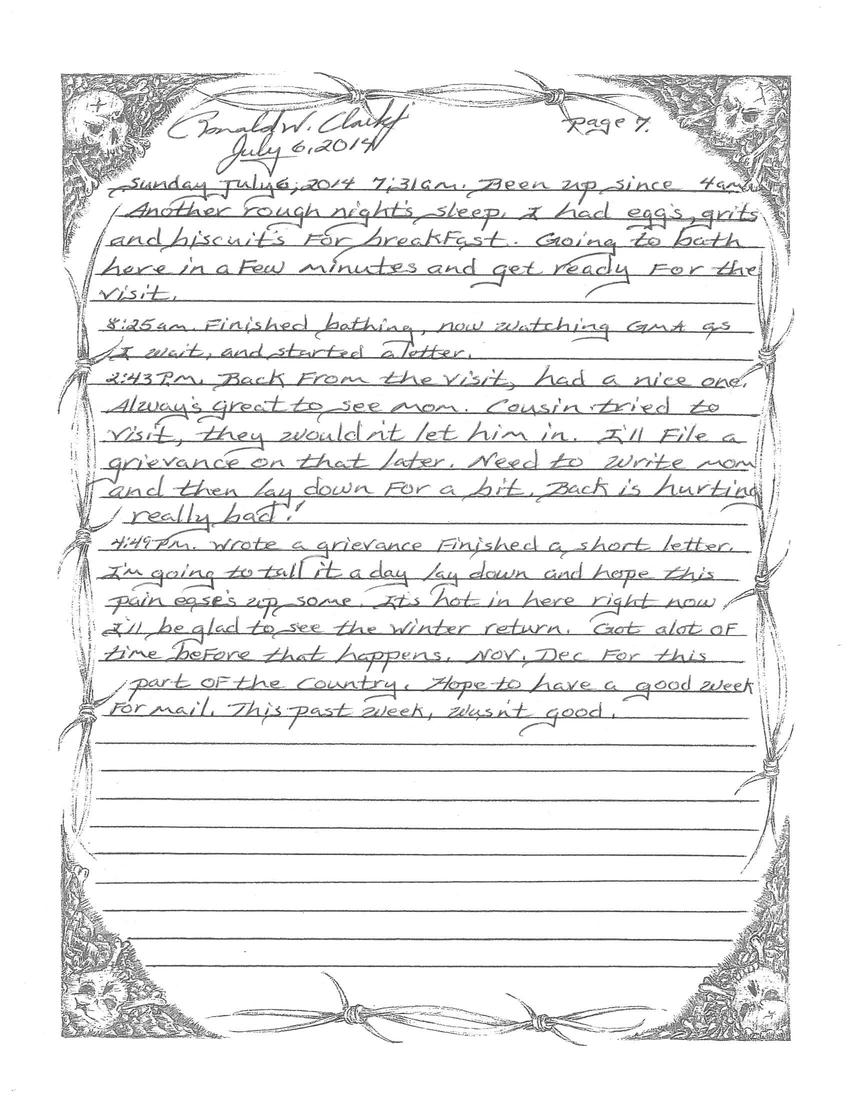 Ronald W. Clark Jr
July 6, 2014
Page 7.
Sunday July 6, 2014 7:31am. Been up since 4am.
Another rough night's sleep. I had egg's, grits
and biscuit's For breakFast. Going to bath
here in a Few minutes and get ready For the
visit.
8:25am. Finished bathing, now watching GMA as
I wait, and started a letter.
2:43P.m. Back From the visit, had a nice one.
Alway's great to see mom. Cousin tried to
visit, they wouldn't let him in. I'll File a
grievance on that later. Need to write mom
and then lay down For a bit. Back is hurting
really bad!
4:49P.m. Wrote a grievance Finished a short letter.
I'm going to tall it a day lay down and hope this
pain ease's up some. It's hot in here right now
I'll be glad to see the winter return. Got alot OF
time beFore that happens. Nov, Dec For this
part OF the Country. Hope to have a good week
For mail. This past week, wasn't good.